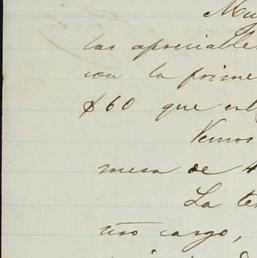 Muy
las apreciables
con la prime
$60 que est
Vemos
mesa de 4
La te
sño cargo,